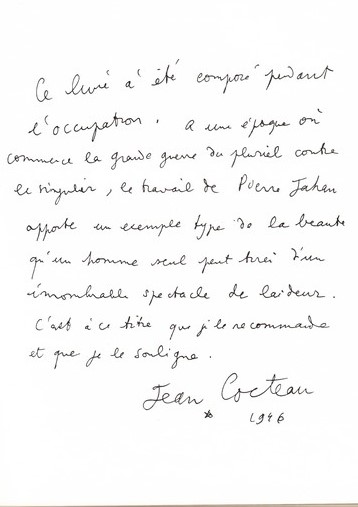 Ce livre a été composé pendant
l'occupation. A une époque où
commence la grande guerre du pluriel contre
le singulier, le travail de Pierre Jahan
apporte un exemple type de la beauté
qu'un homme seul peut tirer d'un
innombrable spectacle de laideur.
C'est à ce titre que je le recommande
et que je le souligne.
Jean Cocteau
* 1946